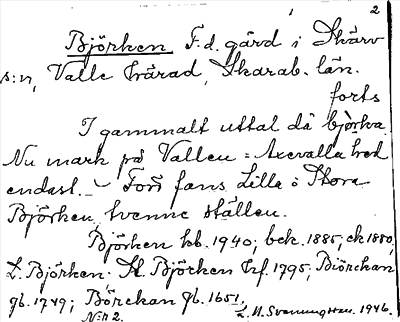 1 2
Björken F.d. gård i Skärv
s:n, Valle härad, Skarab. län.
forts
I gammalt uttal då björka.
Nu mark på Vallen = Axevalla hed
endast. – Förr fans Lilla o Stora
Björken, tvenne ställen.
Björken kb. 1940; bek. 1885; ek 1880;
L. Björken. St. Björcken Hf. 1795; Biörckan
gb. 1749; Börckan gb. 1651.
N:r 2. L. M. Svenungsson. 1946.